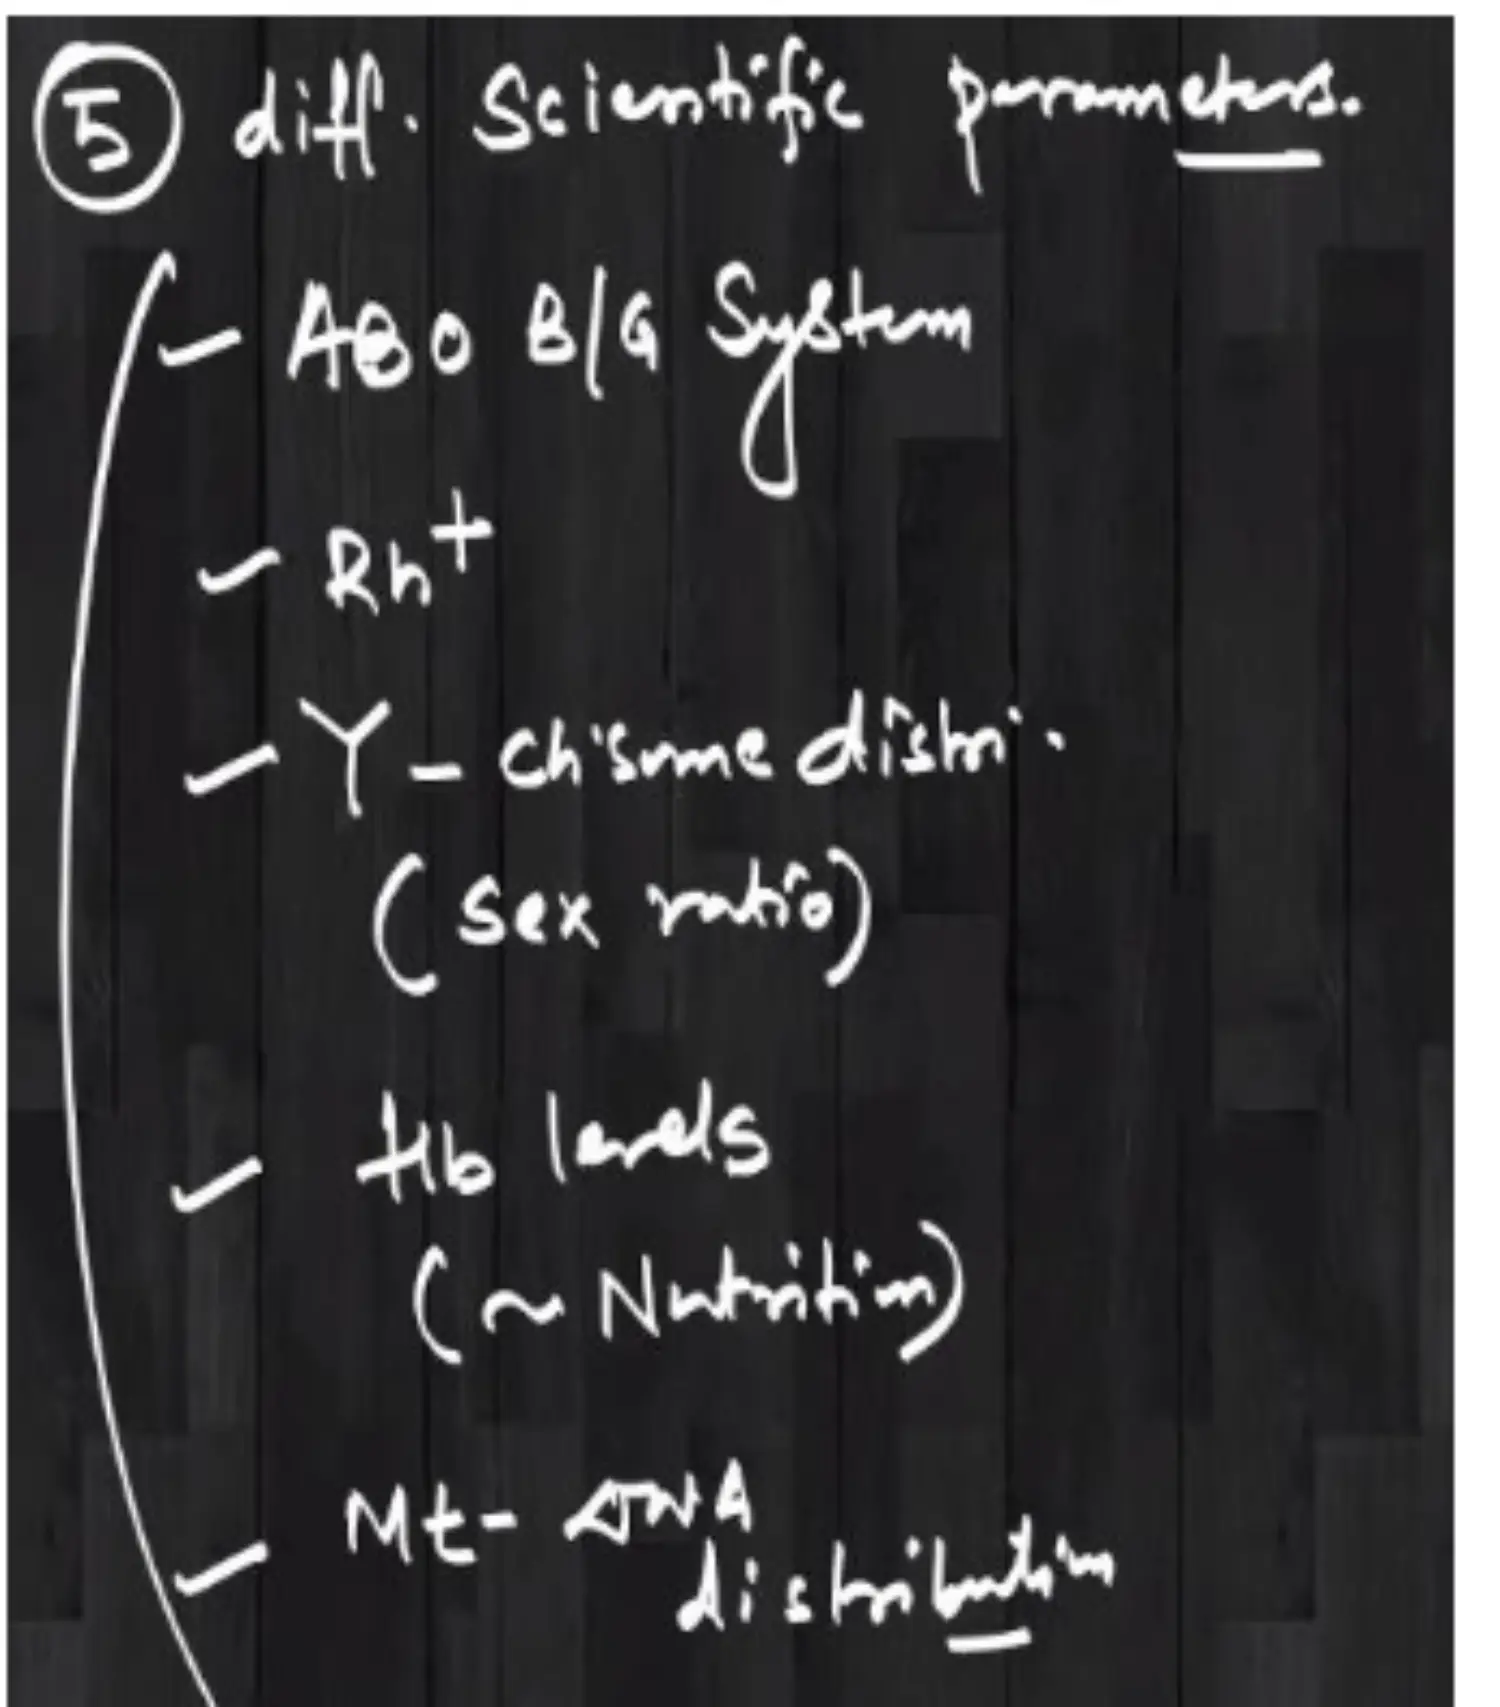 5 diff. Scientific parameters.
- ABO B/G System
- Rh+
- Y - ch'some distri.
(sex ratio)
- Hb levels
(~ Nutrition)
- Mt- DNA
distribution